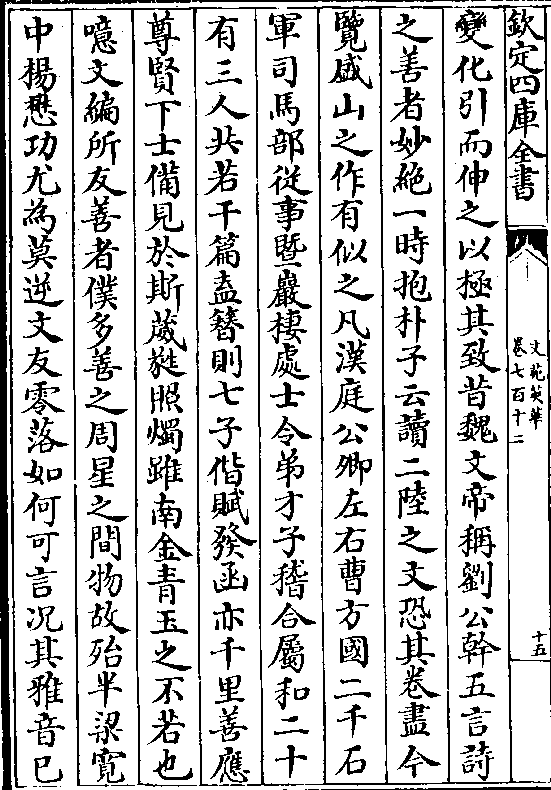 欽定四庫全書
文苑英華
卷七百十二
十五
變化引而伸之以極其致昔魏文帝稱劉公幹五言詩
之善者妙絶一時抱朴子云讀二陸之文恐其卷盡今
覽盛山之作有似之凡漢庭公卿左右曹方國二千石
軍司馬部從事暨巖棲處士令弟才子稽合屬和二十
有三人共若干篇盍簪則七子偕賦發函亦千里善應
尊賢下士備見於斯葳蕤照燭雖南金青玉之不若也
噫文編所友善者僕多善之周星之間物故殆半梁寛
中楊懋功尤為莫逆文友零落如何可言况其雅音已